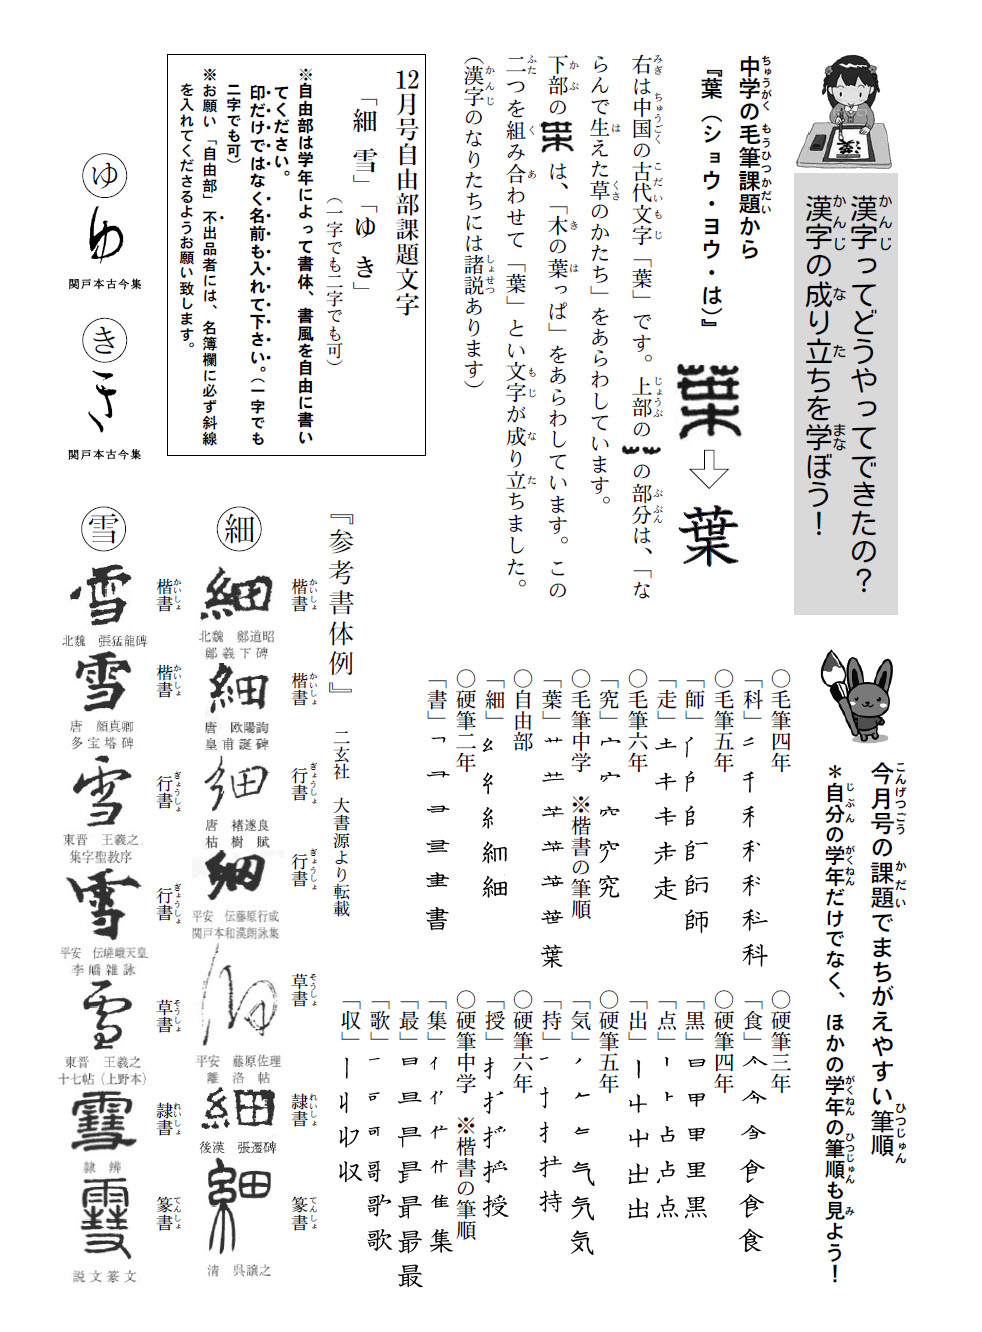 漢字ってどうやってできたの？
漢字の成り立ちを学ぼう！
中学の毛筆課題から
『葉（ショウ・ヨウ・は）』
葉
右は中国の古代文字「葉」です。上部の の部分は、「な
らんで生えた草のかたち」をあらわしています。
下部の は、「木の葉っぱ」をあらわしています。この
二つを組み合わせて「葉」とい文字が成り立ちました。
（漢字のなりたちには諸説あります）
12月号自由部課題文字
「細 雪」「ゆ き」
（一字でも二字でも可）
※自由部は学年によって書体、書風を自由に書い
てください。
印だけではなく名前も入れて下さい。（一字でも
二字でも可）
※お願い「自由部」不出品者には、名簿欄に必ず斜線
を入れてくださるようお願い致します。
ゆ
ゆ
関戸本古今集
き
き
関戸本古今集
今月号の課題でまちがえやすい筆順
＊自分の学年だけでなく、ほかの学年の筆順も見よう！
〇毛筆四年
「科」
〇毛筆五年
「師」
「走」
〇毛筆六年
「究」
〇毛筆中学 ※楷書の筆順
「葉」
〇自由部
「細」
〇硬筆二年
「書」
〇硬筆三年
「食」
〇硬筆四年
「黒」
「点」
「出」
〇硬筆五年
「気」
「持」
〇硬筆六年
「授」
〇硬筆中学 ※楷書の筆順
「集」
「最」
「歌」
「収」
『参考書体例』 二玄社 大書源より転載
細
楷書
細
北魏 鄭道昭
鄭羲下碑
楷書
細
唐 欧陽詢
皇甫誕碑
行書
細
唐 褚遂良
枯樹賦
行書
細
平安 伝藤原行成
関戸本和漢朗詠集
草書
細
平安 藤原佐理
離洛帖
隷書
細
後漢 張遷碑
篆書
細
清 呉譲之
雪
楷書
雪
北魏 張猛龍碑
楷書
雪
唐 顔真卿
多宝塔碑
行書
雪
東晋 王羲之
集字聖教序
行書
雪
平安 伝嵯峨天皇
李嶠雑詠
草書
雪
東晋 王羲之
十七帖（上野本）
隷書
雪
隷辨
篆書
雪
説文篆文